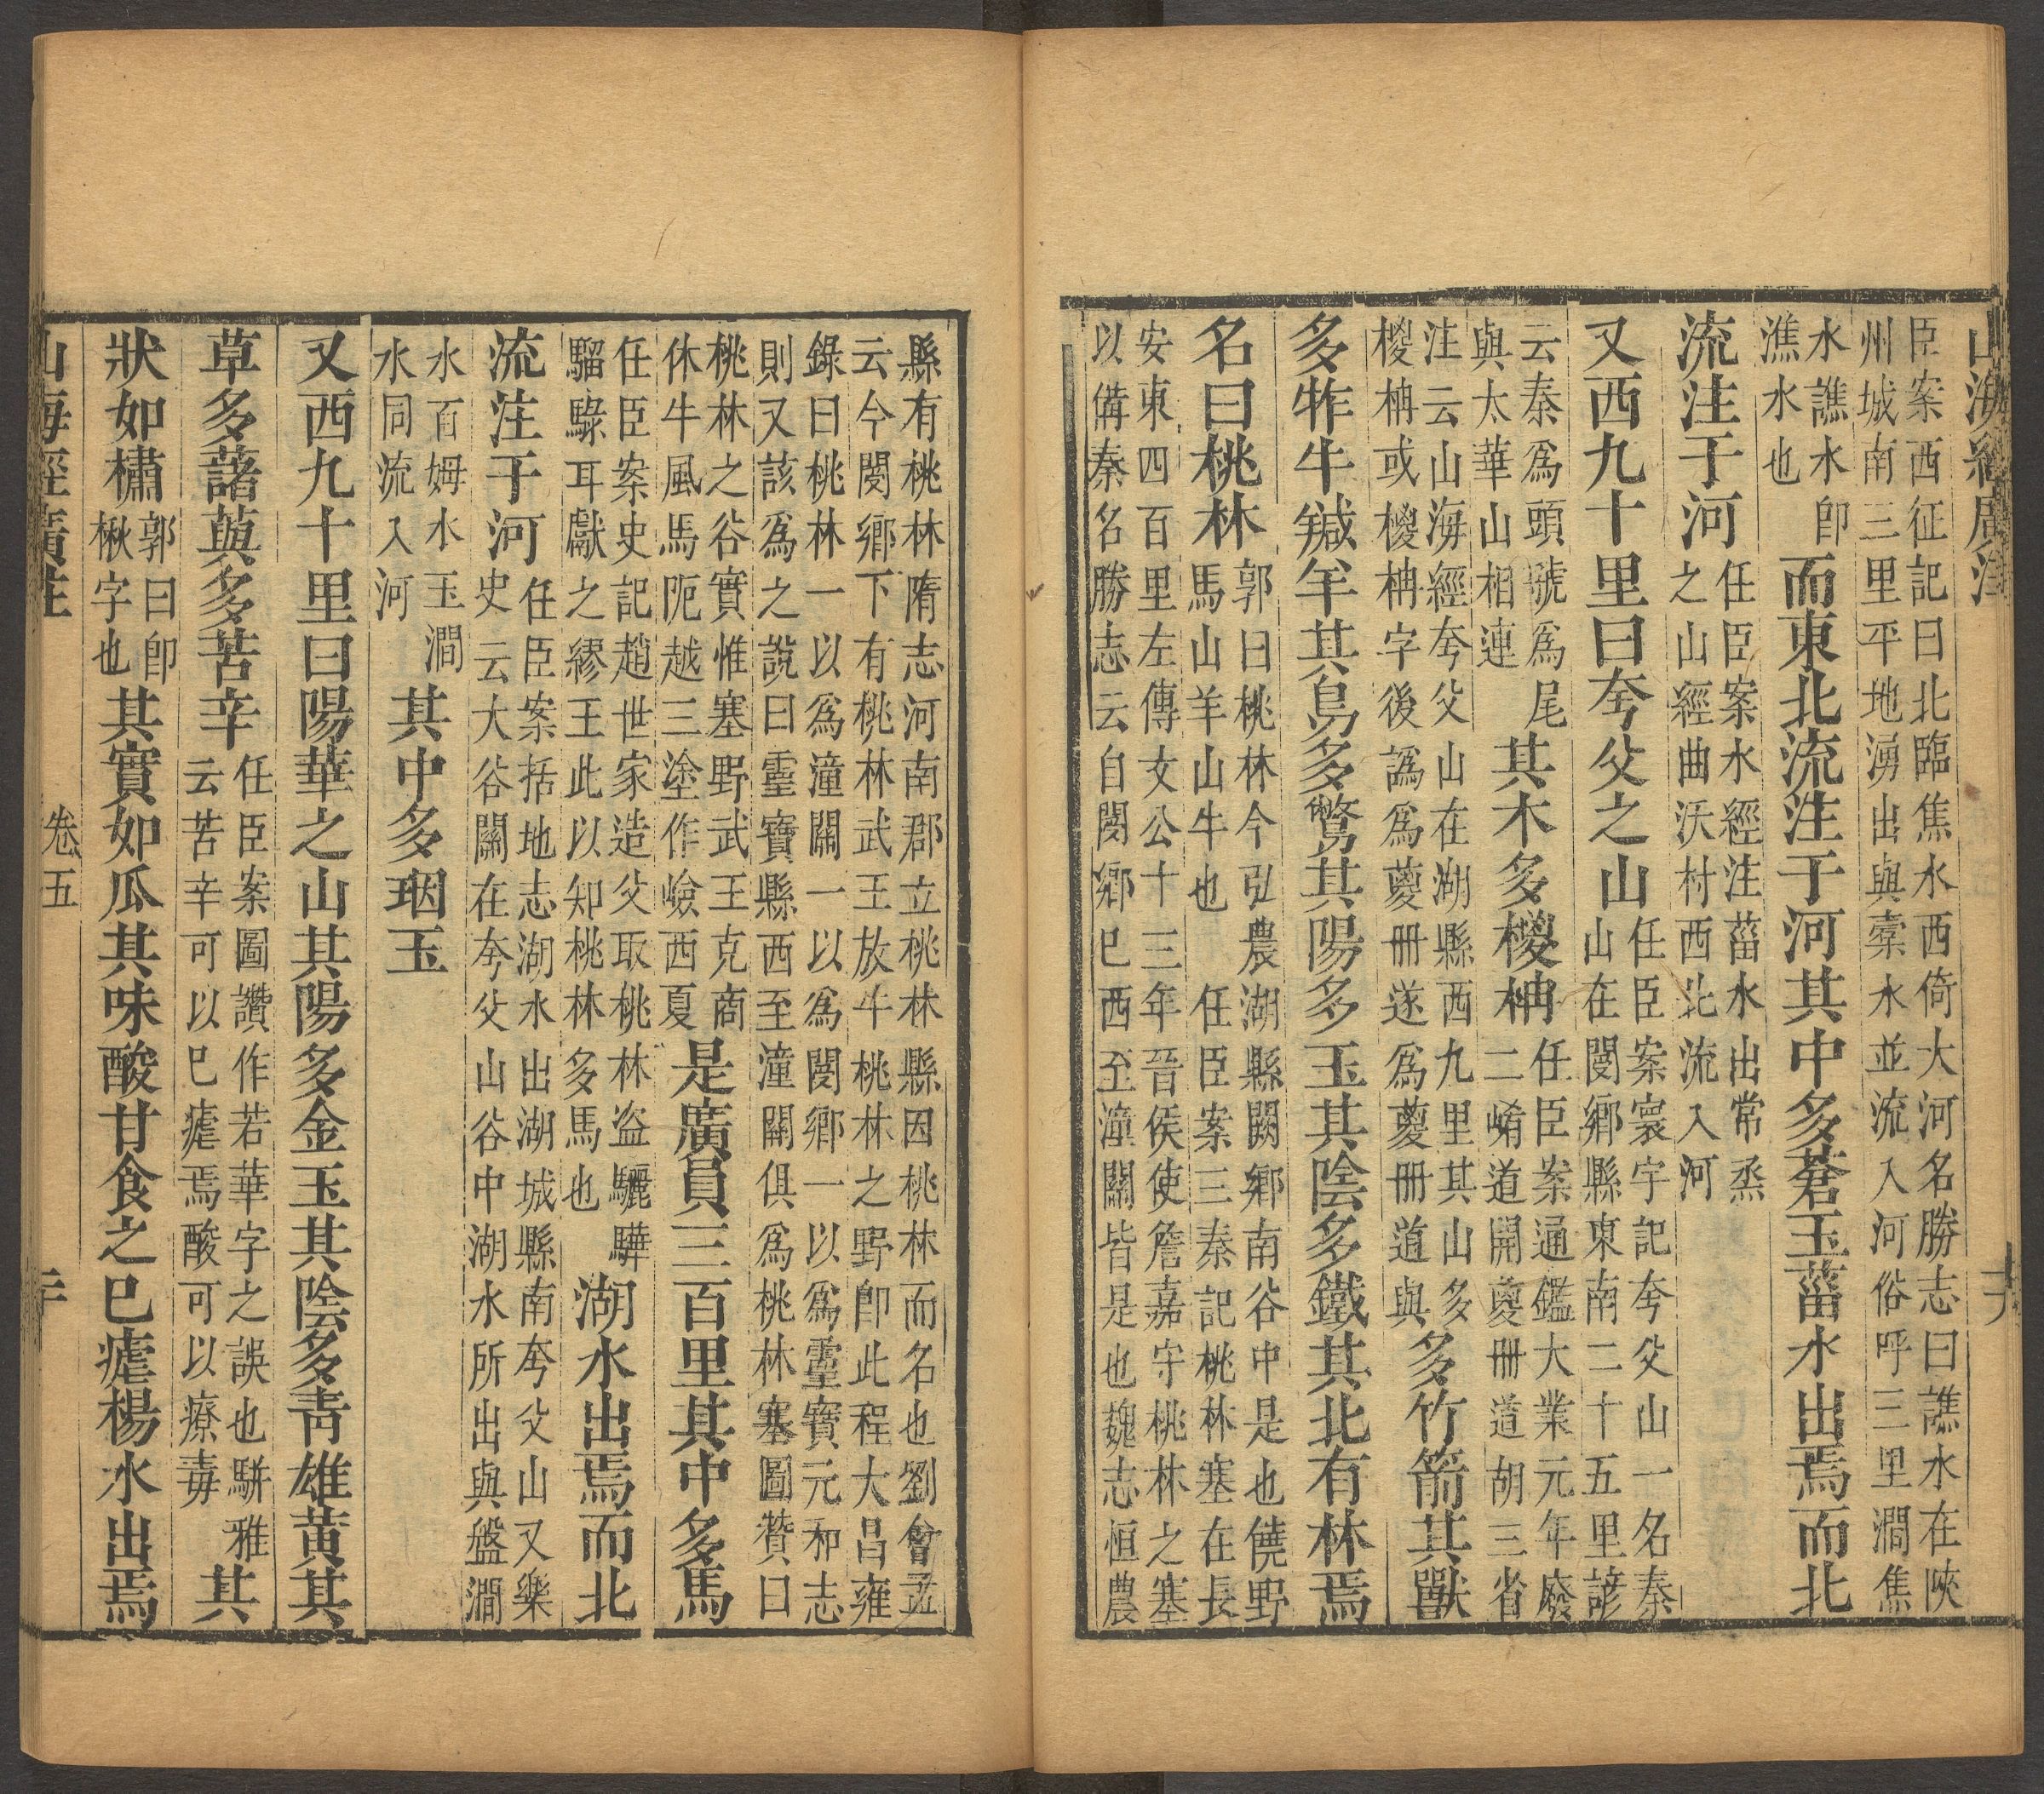 山海經廣注
臣案西征記曰北臨焦水西倚大河名勝志曰譙水在陝
州城南三里平地湧出與槖水並流入河俗呼三里澗焦
水譙水卽
潐水也
而東北流注于河其中多蒼玉菑水出焉而北
流注于河
任臣案水經注菑水出常烝
之山經曲沃村西北流入河
又西九十里曰夸父之山
任臣案寰宇記夸父山一名秦
山在閿鄉縣東南二十五里諺
云秦爲頭虢爲尾
與太華山相連
其木多椶柟
任臣案通鑑大業元年廢
二崤道開葼冊道胡三省
注云山海經夸父山在湖縣西九里其山多
椶柟或椶柟字後譌爲葼冊遂爲葼冊道與
多竹箭其獸
多㸲牛羬羊其鳥多鷩其陽多玉其陰多鐵其北有林焉
名曰桃林
郭曰桃林今弘農湖縣闕鄉南谷中是也饒野
馬山羊山牛也　任臣案三秦記桃林塞在長
安東四百里左傳文公十三年晉侯使詹嘉守桃林之塞
以備秦名勝志云自閿鄉巳西至潼關皆是也魏志恒農
縣有桃林隋志河南郡立桃林縣因桃林而名也劉會孟
云今閿鄉下有桃林武王放牛桃林之野卽此程大昌雍
錄曰桃林一以爲潼關一以爲閿鄉一以爲靈寶元和志
則又該爲之說曰靈寶縣西至潼關俱爲桃林塞圖贊曰
桃林之谷實惟塞野武王克商
休牛風馬阨越三塗作嶮西夏
是廣員三百里其中多馬
任臣案史記趙世家造父取桃林盜驪驊
騮騄耳獻之繆王此以知桃林多馬也
湖水出焉而北
流注于河
任臣案括地志湖水出湖城縣南夸父山又樂
史云大谷關在夸父山谷中湖水所出與盤澗
水百姆水玉澗
水同流入河
其中多珚玉
又西九十里曰陽華之山其陽多金玉其陰多青雄黃其
草多藷藇多苦辛
任臣案圖讚作若華字之誤也駢雅
云苦辛可以巳瘧焉酸可以療毒
其
狀如橚
郭曰卽
楸字也
其實如瓜其味酸甘食之巳瘧楊水出焉
山海經廣注
卷五
二十